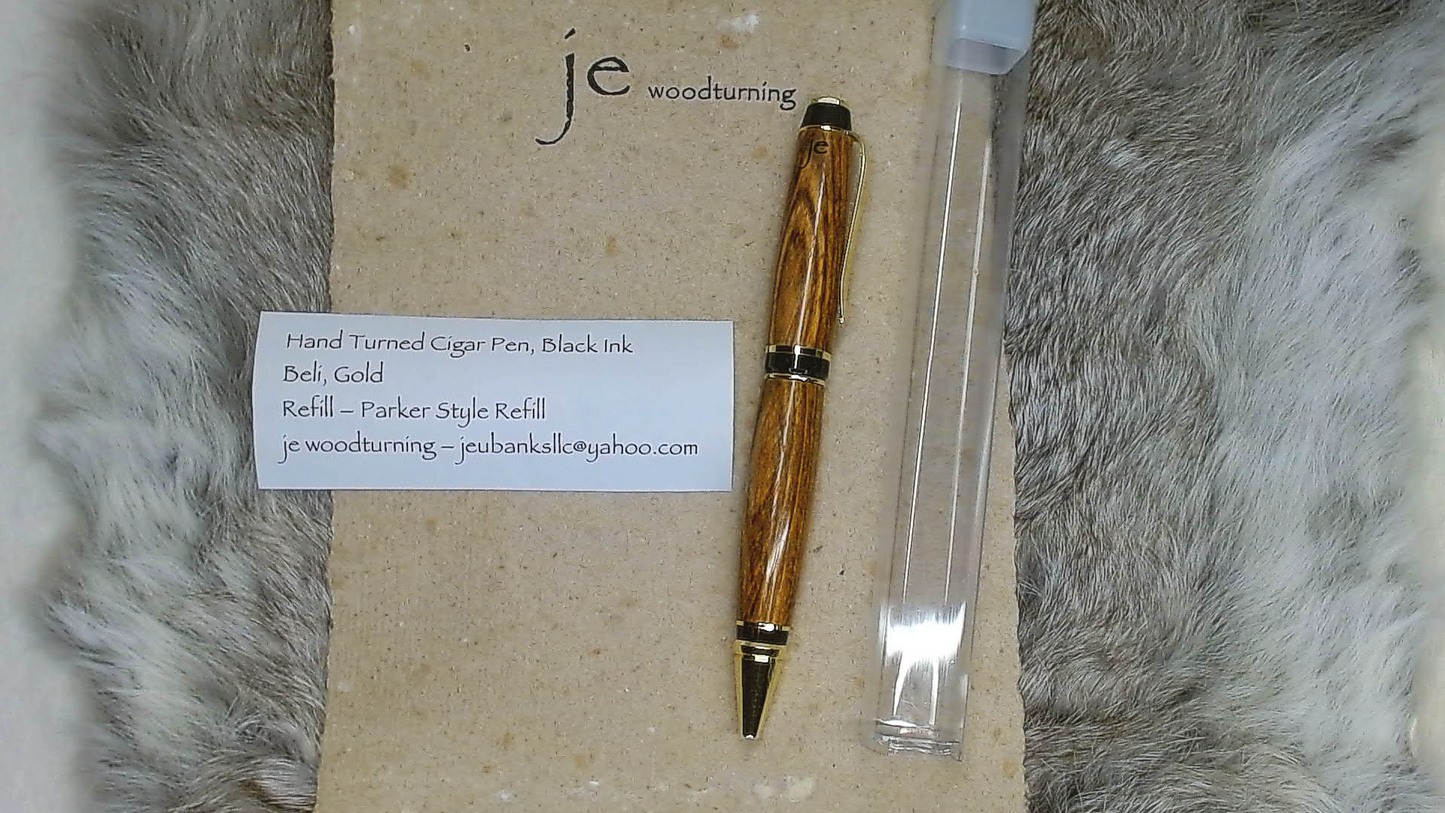 je woodturning
je
Hand Turned Cigar Pen, Black Ink
Beli, Gold
Refill – Parker Style Refill
je woodturning – jeubanksllc@yahoo.com